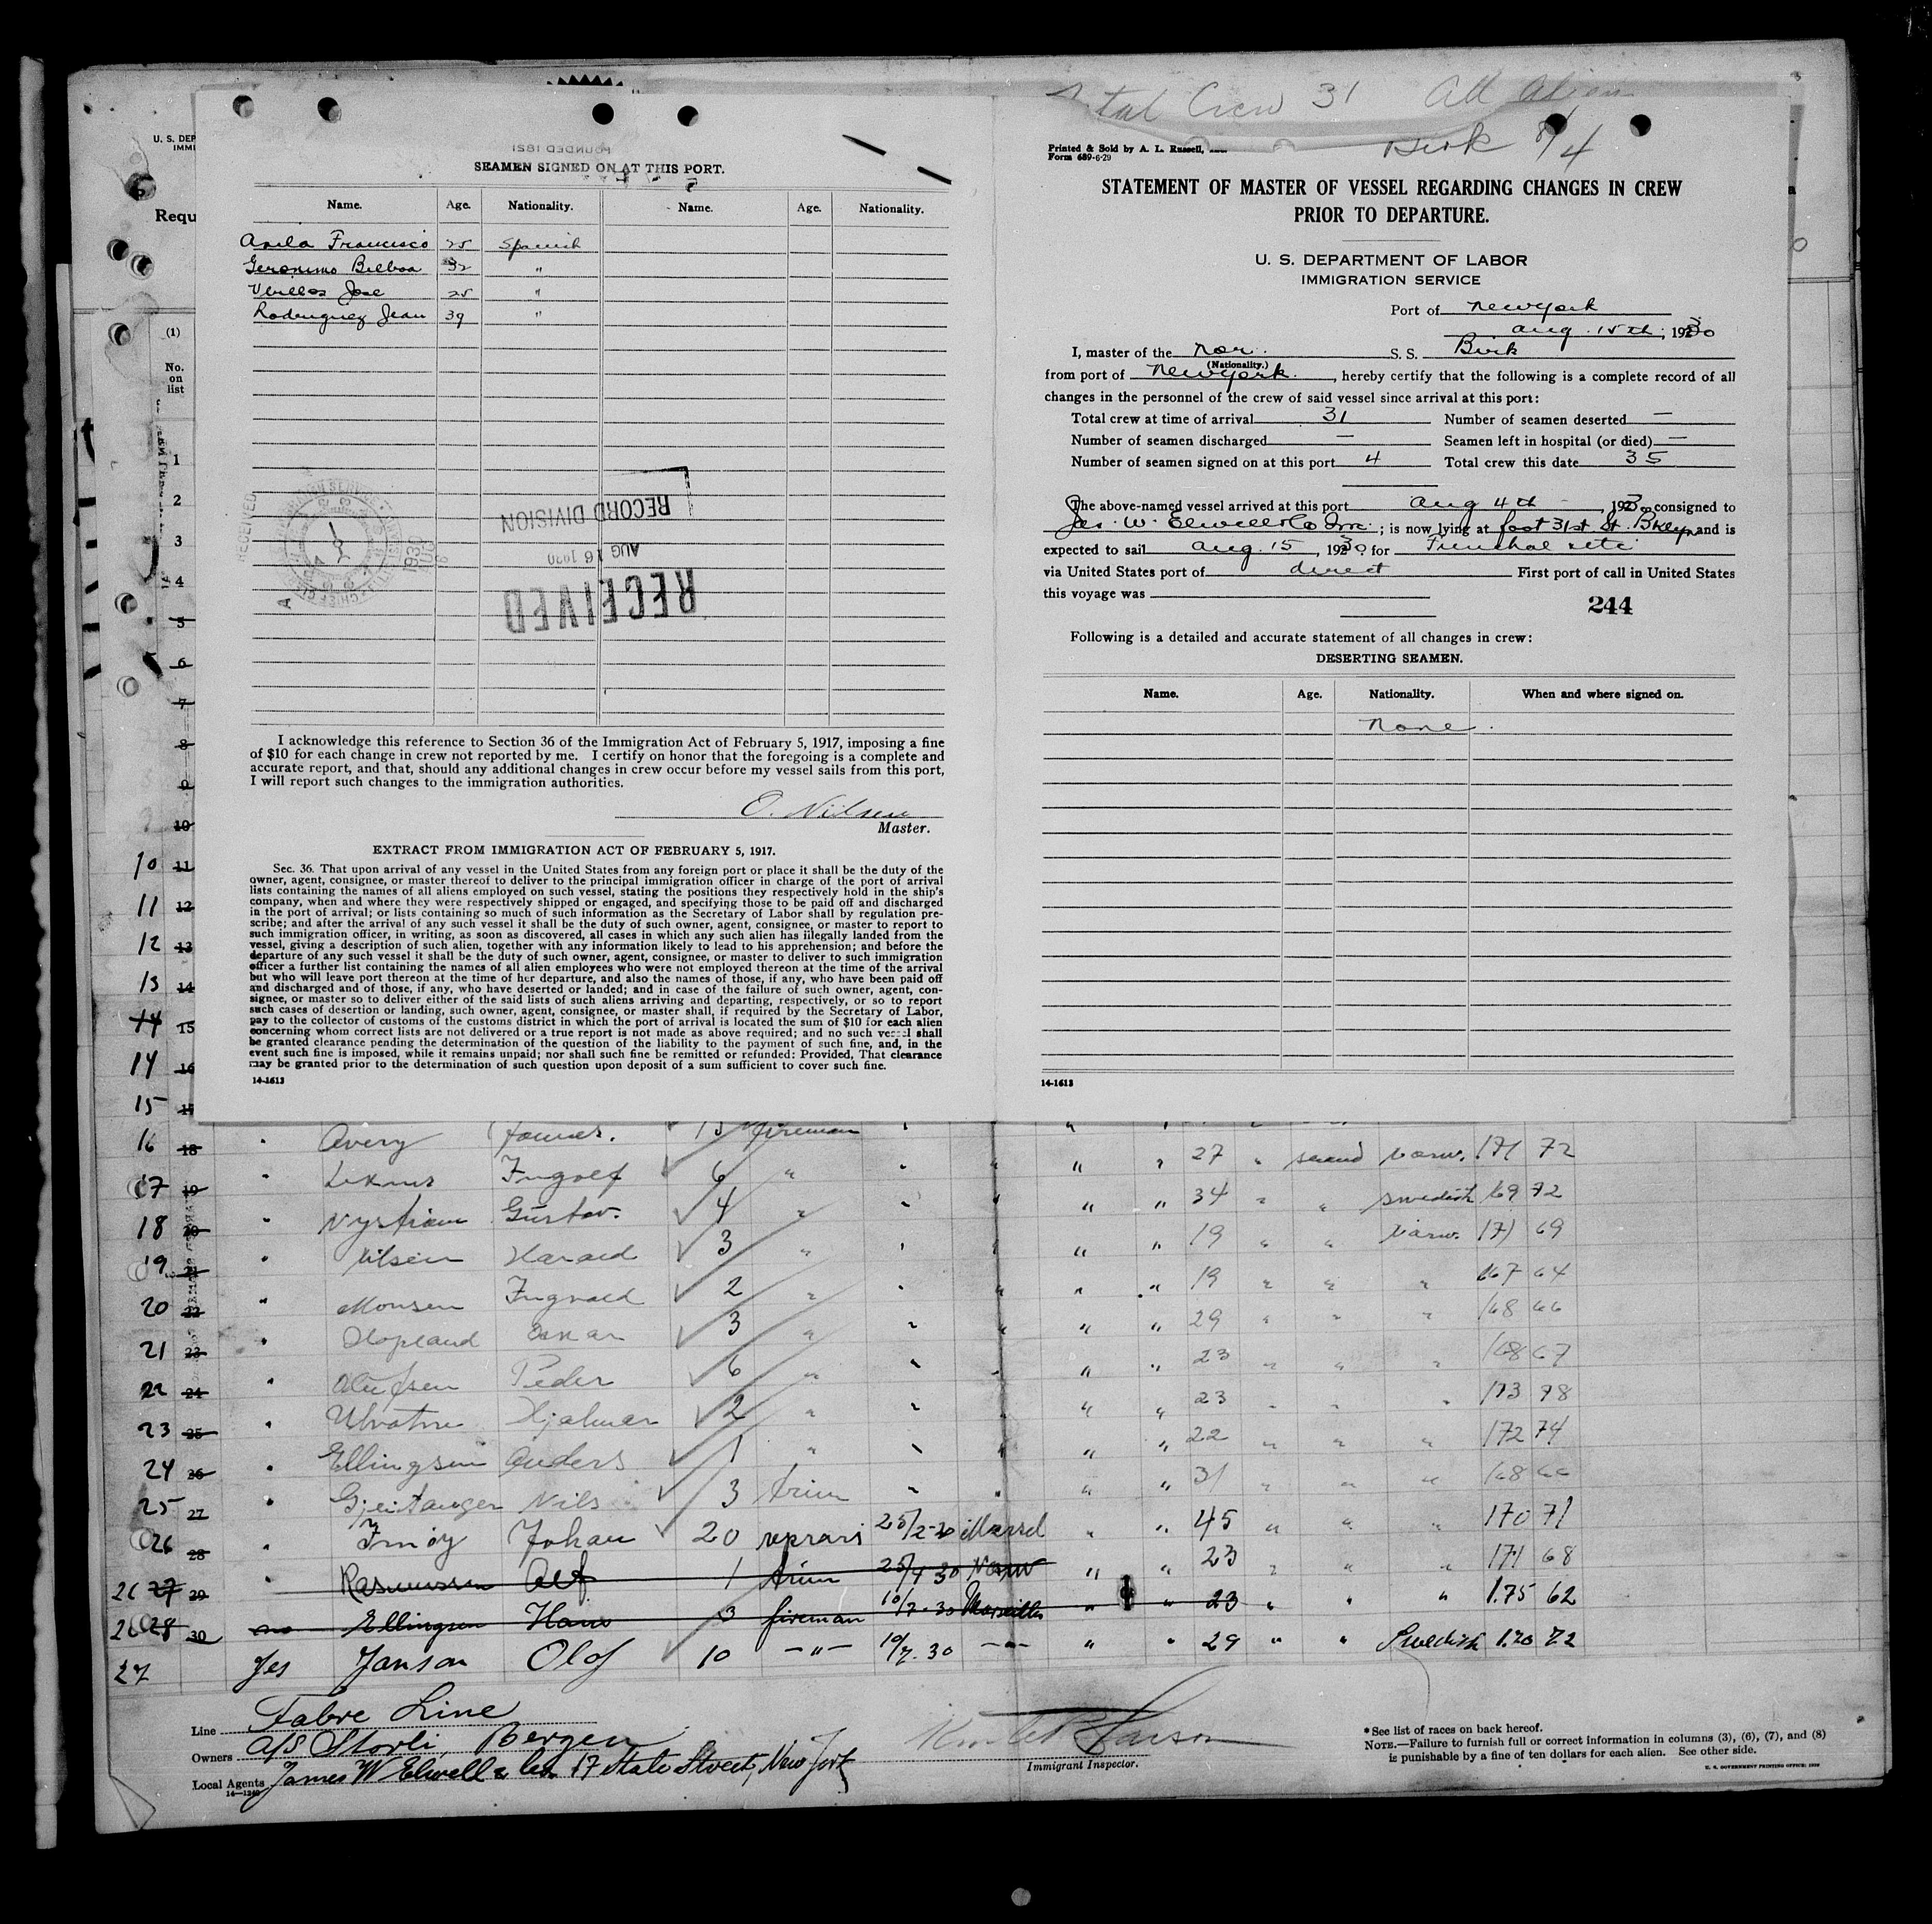 Total Crew 31 All Alien
Birk 8/4
U. S. DEP
IMMI
Requ
(1)
No.
on
list
FOUNDED 1821
SEAMEN SIGNED ON AT THIS PORT.
Name. Age. Nationality. Name. Age. Nationality.
Avila Francisco 25 Spanish
Geronimo Bilboa 32 "
José 25 "
Rodriguez Jean 39 "
RECORD DIVISION
AUG 16 1930
RECEIVED
I acknowledge this reference to Section 36 of the Immigration Act of February 5, 1917, imposing a fine
of $10 for each change in crew not reported by me. I certify on honor that the foregoing is a complete and
accurate report, and that, should any additional changes in crew occur before my vessel sails from this port,
I will report such changes to the immigration authorities.
O. Nilsen
Master.
EXTRACT FROM IMMIGRATION ACT OF FEBRUARY 5, 1917.
Sec. 36. That upon arrival of any vessel in the United States from any foreign port or place it shall be the duty of the
owner, agent, consignee, or master thereof to deliver to the principal immigration officer in charge of the port of arrival
lists containing the names of all aliens employed on such vessel, stating the positions they respectively hold in the ship's
company, when and where they were respectively shipped or engaged, and specifying those to be paid off and discharged
in the port of arrival; or lists containing so much of such information as the Secretary of Labor shall by regulation pre-
scribe; and after the arrival of any such vessel it shall be the duty of such owner, agent, consignee, or master to report to
such immigration officer, in writing, as soon as discovered, all cases in which any such alien has illegally landed from the
vessel, giving a description of such alien, together with any information likely to lead to his apprehension; and before the
departure of any such vessel it shall be the duty of such owner, agent, consignee, or master to deliver to such immigration
officer a further list containing the names of all alien employees who were not employed thereon at the time of the arrival
but who will leave port thereon at the time of her departure, and also the names of those, if any, who have been paid off
and discharged and of those, if any, who have deserted or landed; and in case of the failure of such owner, agent, con-
signee, or master so to deliver either of the said lists of such aliens arriving and departing, respectively, or so to report
such cases of desertion or landing, such owner, agent, consignee, or master shall, if required by the Secretary of Labor,
pay to the collector of customs of the customs district in which the port of arrival is located the sum of $10 for each alien
concerning whom correct lists are not delivered or a true report is not made as above required; and no such vessel shall
be granted clearance pending the determination of the question of the liability to the payment of such fine, and, in the
event such fine is imposed, while it remains unpaid; nor shall such fine be remitted or refunded: Provided, That clearance
may be granted prior to the determination of such question upon deposit of a sum sufficient to cover such fine.
14-1613
Printed & Sold by A. L. Russell,
Form 689-6-29
STATEMENT OF MASTER OF VESSEL REGARDING CHANGES IN CREW
PRIOR TO DEPARTURE.
U. S. DEPARTMENT OF LABOR
IMMIGRATION SERVICE
Port of New York
Aug. 15th, 1930
I, master of the Nor. S. S. Birk
(Nationality.)
from port of New York, hereby certify that the following is a complete record of all
changes in the personnel of the crew of said vessel since arrival at this port:
Total crew at time of arrival 31 Number of seamen deserted —
Number of seamen discharged — Seamen left in hospital (or died) —
Number of seamen signed on at this port 4 Total crew this date 35
The above-named vessel arrived at this port Aug 4th, 1930 consigned to
Jas. W. Elwell & Co Inc.; is now lying at foot 31st St. Bklyn and is
expected to sail Aug 15, 1930 for Funchal etc
via United States port of direct First port of call in United States
this voyage was
244
Following is a detailed and accurate statement of all changes in crew:
DESERTING SEAMEN.
Name. Age. Nationality. When and where signed on.
None.
14-1613
1
2
3
4
5
6
7
8
9
10
10 11
11 12
12 13
13 14
14 15
14 16
15 17
16 18 " Avery 15 fireman "
17 19 " Ingolf 6 " " " " " 27 " scand norw. 171 72
18 20 " Nystrøm Gustav. 4 " " " " " 34 " " swedish 169 72
19 21 " Nilsen Harald 3 " " " " " 19 " " norw. 171 69
20 22 " Monsen Ingvald 2 " " " " " 19 " " " 167 64
21 23 " Hopland Oskar 3 " " " " " 29 " " " 168 66
22 24 " Olufsen Peder 6 " " " " " 23 " " " 168 67
23 25 " Hjalmar 2 " " " " " 23 " " " 173 78
24 26 " Ellingsen Anders 1 " " " " " 22 " " " 172 74
25 27 " Gjeitanger Nils 3 trim " " " " 31 " " " 168 66
26 28 " Johan 20 reprari 25/2-30 Marsel " " 45 " " " 170 71
26 27 29 " Rasmussen Alf 1 trim 25/4 30 Norw " " 23 " " " 171 68
26 28 30 no Ellingsen Hans 3 fireman 10/7-30 Marseilles " " 23 " " " 1.75 62
27 Yes Janson Olof 10 —"— 10/7.30 —"— " " 29 " " Swedish 1.70 72
Line Fabre Line
Owners A/S Storli, Bergen
Local Agents James W Elwell & Co. 17 State Street, New York
14—1240
Immigrant Inspector.
*See list of races on back hereof.
NOTE.—Failure to furnish full or correct information in columns (3), (6), (7), and (8)
is punishable by a fine of ten dollars for each alien. See other side.
U. S. GOVERNMENT PRINTING OFFICE: 1929